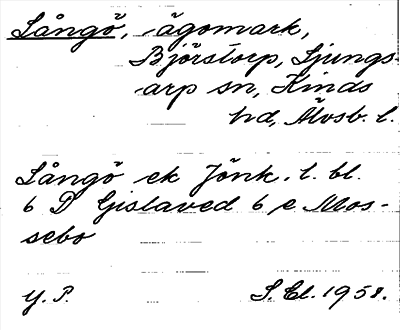 Långö, -ägomark,
Björstorp, Ljungs-
arp sn, Kinds
hd, Älvsb. l.
Långö ek Jönk. l. bl.
6 D Gislaved 6 e Mos-
sebo
Y. P. S. Cl. 1958.